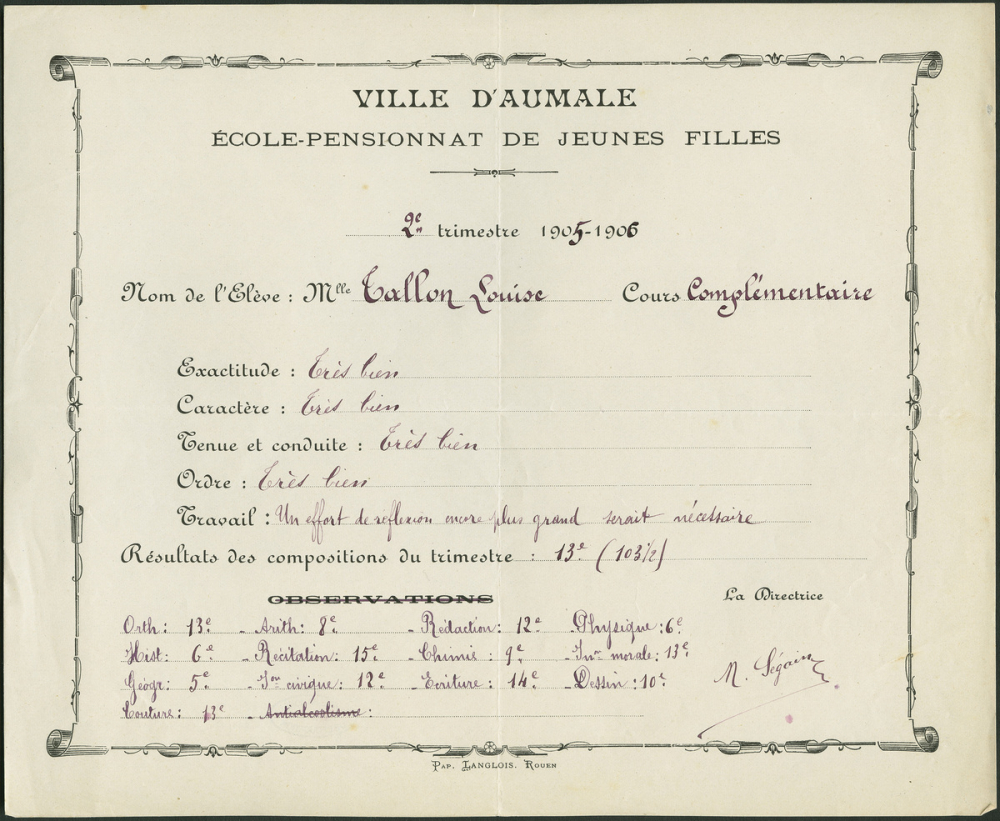 VILLE D'AUMALE
ÉCOLE-PENSIONNAT DE JEUNES FILLES
2e trimestre 1905-1906
Nom de l'Elève : Mlle Tallon Louise Cours Complémentaire
Exactitude : Très bien
Caractère : Très bien
Tenue et conduite : Très bien
Ordre : Très bien
Travail : Un effort de réflexion encore plus grand serait nécessaire
Résultats des compositions du trimestre : 13e (103½)
OBSERVATIONS
La Directrice
Orth : 13e - Arith : 8e - Rédaction : 12e - Physique : 6e
Hist : 6e - Récitation : 15e - Chimie : 9e - Inon morale : 13e
Géogr : 5e - Ion civique : 12e - Ecriture : 14e - Dessin : 10e
M. Ségain
Couture : 13e - Antialcoolisme :
PAP. LANGLOIS. ROUEN